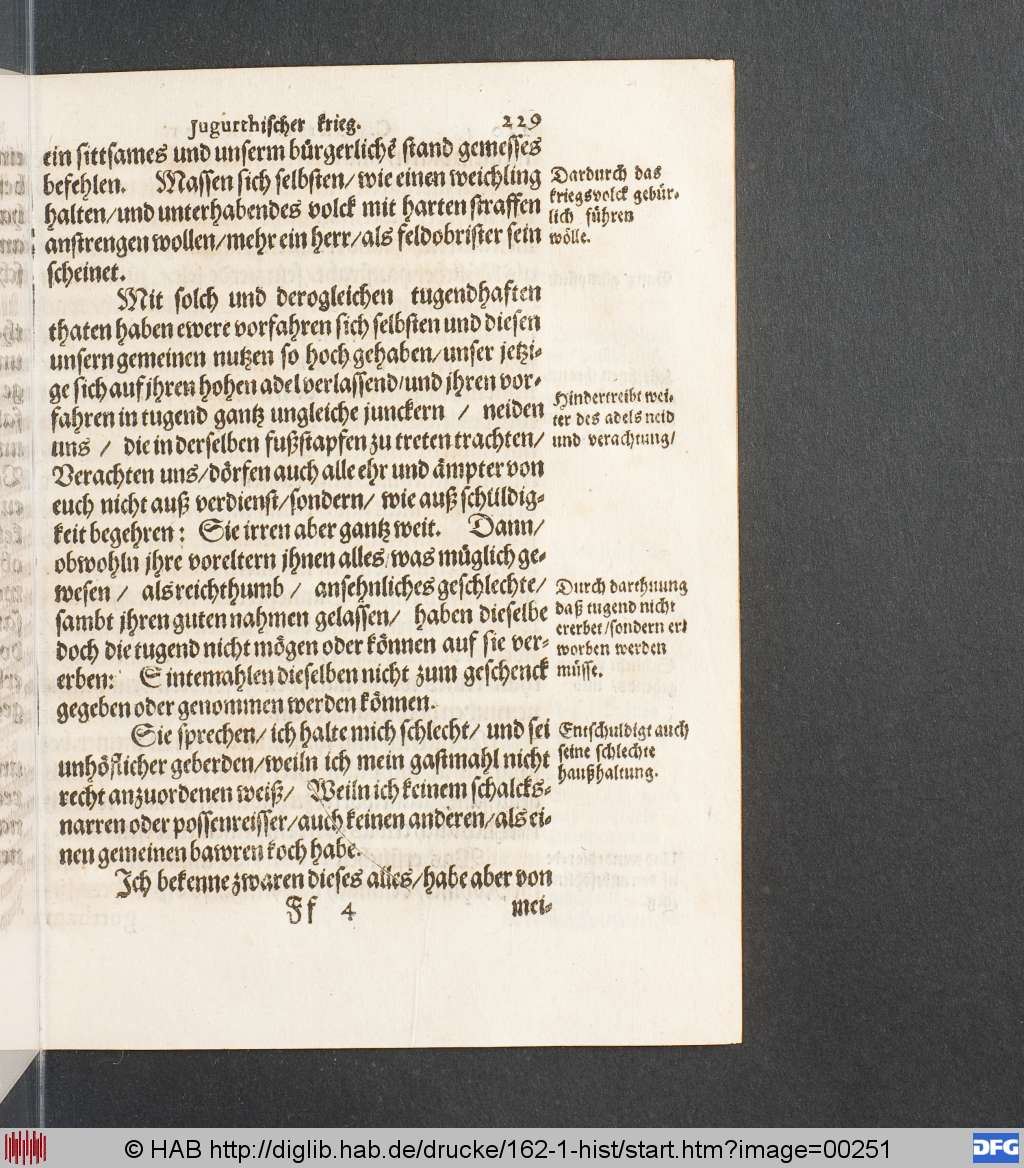 Jugurthischer krieg. 229
ein sittsames und unserm bürgerlichẽ stand gemesses
befehlen. Massen sich selbsten/ wie einen weichling
halten/ und unterhabendes volck mit harten straffen
anstrengen wollen/ mehr ein herr/ als feldobrister sein
scheinet.
Dardurch das
kriegsvolck gebür-
lich führen
wölle.
Mit solch und derogleichen tugendhaften
thaten haben ewere vorfahren sich selbsten und diesen
unsern gemeinen nutzen so hoch gehaben/ unser jetzi-
ge sich auf jhren hohen adel verlassend/ und jhren vor-
fahren in tugend gantz ungleiche junckern / neiden
uns / die in derselben fußstapfen zu treten trachten/
Verachten uns/ dörfen auch alle ehr und ämpter von
euch nicht auß verdienst/ sondern/ wie auß schüldig-
keit begehren: Sie irren aber gantz weit. Dann/
obwohln jhre voreltern jhnen alles/ was müglich ge-
wesen / als reichthumb / ansehnliches geschlechte/
sambt jhren guten nahmen gelassen/ haben dieselbe
doch die tugend nicht mögen oder können auf sie ver-
erben: Sintemahlen dieselben nicht zum geschenck
gegeben oder genommen werden können.
Hindertreibt wei-
ter des adels neid
und verachtung/
Durch darthuung
daß tugend nicht
ererbet/ sondern er-
worben werden
müsse.
Sie sprechen/ ich halte mich schlecht/ und sei
unhöflicher geberden/ weiln ich mein gastmahl nicht
recht anzuordenen weiß/ Weiln ich keinem schalcks-
narren oder possenreisser/ auch keinen anderen/ als ei-
nen gemeinen bawren koch habe.
Entschuldigt auch
seine schlechte
haußhaltung.
Ich bekenne zwaren dieses alles/ habe aber von
Ff 4 mei-
© HAB http://diglib.hab.de/drucke/162-1-hist/start.htm?image=00251
DFG